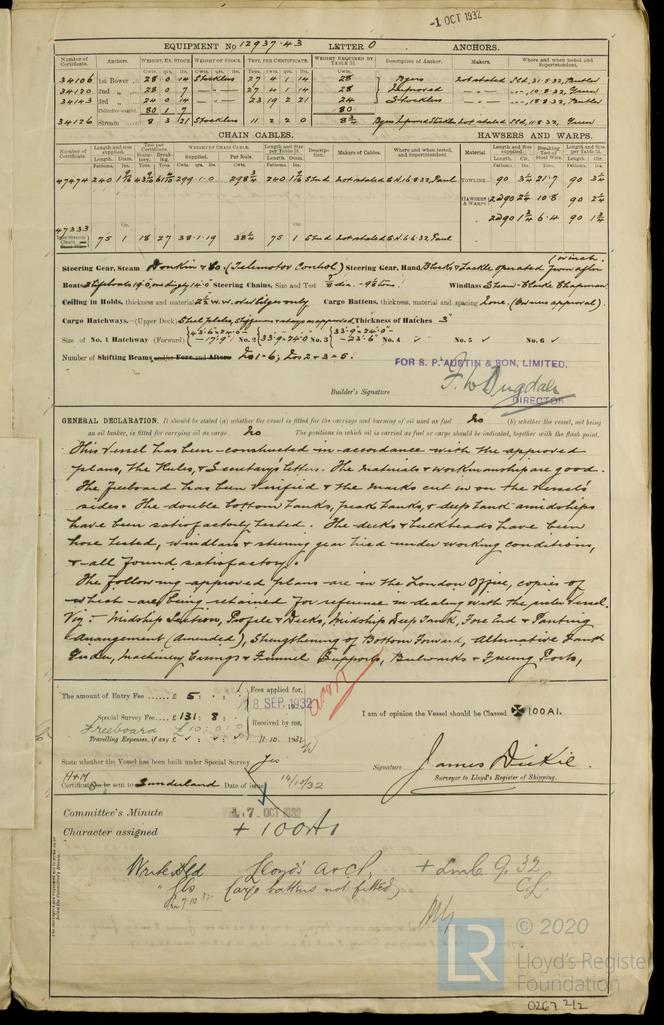 -1 OCT 1932
EQUIPMENT No 12937.43 LETTER O ANCHORS.
Number of Certificate. Anchors. WEIGHT, EX. STOCK WEIGHT OF STOCK. TEST, PER CERTIFICATE. WEIGHT REQUIRED BY TABLE 31. Description of Anchor. Makers. Where and when tested and Superintendent.
34106 1st Bower 28 0 14 Stockless 27 4 1 14 28 Byers not stated Sld, 31.5.32, Butler
34120 2nd " 28 0 7 27 4 1 14 28 Improved 10.8.32, Green
34143 3rd " 24 0 14 23 19 2 21 24 Stockless 18.8.32, Butler
80 1 7 80
34126 Stream 8 3 21 Stockless 11 2 2 0 8¾ Byers Improved Stockless not stated Sld, 11.8.32, Green
CHAIN CABLES. HAWSERS AND WARPS.
Number of Certificate. Length and size supplied. Test per Certificate. WEIGHT OF CHAIN CABLE. Length and size per Table 31. Description. Makers of Cables. Where and when tested, and Superintendent. Material. Length and size supplied. Breaking Test of Steel Wire. Length and size per Table 31.
47474 240 299.1.0 298¾ 240 Stud not stated G.N. 16.8.32, Paul TOWLINE 90 3¼ 21.7 90 3¼
HAWSERS & WARPS 2@90 2¼ 10.8 90 2¼
2@90 1¾ 6.4 90 1¾
47333 75 1 18 27 38.1.19 38¼ 75 1 Stud not stated G.N. 6.6.32, Paul
Steering Gear, Steam Donkin & Co. (Telemotor Control) Steering Gear, Hand Blocks & tackle operated from after winch.
Boats 2 lifeboats 19.0, one dinghy 14.0 Steering Chains, Size and Test ⅞ dia. - 9⅛ tons. Windlass Steam - Clarke Chapman
Ceiling in Holds, thickness and material 2½ w.w. over bilges only Cargo Battens, thickness, material and spacing None. (Owners approval).
Cargo Hatchways. (Upper Deck) Steel plates, stiffeners & stays as approved. Thickness of Hatches 3"
Size of No. 1 Hatchway (Forward) No. 2 33.9 × 24.0 No. 3 No. 4 ✓ No. 5 ✓ No. 6 ✓
Number of Shifting Beams and/or Fore and Afters No 1 = 6; Nos 2 & 3 = 5.
FOR S. P. AUSTIN & SON, LIMITED.
F. W. Dugdale
DIRECTOR
Builder's Signature
GENERAL DECLARATION. It should be stated (a) whether the vessel is fitted for the carriage and burning of oil used as fuel No (b) whether the vessel, not being
an oil tanker, is fitted for carrying oil as cargo No The positions in which oil is carried as fuel or cargo should be indicated, together with the flash point.
This vessel has been constructed in accordance with the approved
plans, the Rules, & Secretary's letters. The materials & workmanship are good.
The freeboard has been verified & the marks cut in on the vessels'
sides. The double bottom tanks, peak tanks, & deep tank amidships
have been satisfactorily tested. The decks & bulkheads have been
hose tested, windlass & steering gear tried under working conditions,
& all found satisfactory.
The following approved plans are in the London Office, copies of
which are being retained for reference in dealing with the sister vessel.
Viz:- Midship Section, Profile & Decks, Midship Deep Tank, Fore End & Panting
Arrangement (Amended), Strengthening of Bottom Forward, Alternative Tank
Girder, Machinery Casings & Funnel Supports, Bulwarks & Freeing Ports,
The amount of Entry Fee £ 5 : : Fees applied for,
28 SEP. 1932
Special Survey Fee £ 131 : 8 : Received by me,
Freeboard £10 : 0 : 0
Travelling Expenses, if any £ 11.10.1932
I am of opinion the Vessel should be Classed ✠ 100A1.
State whether the Vessel has been built under Special Survey Yes
Signature James Dickie.
Surveyor to Lloyd's Register of Shipping.
H+M
Certificate to be sent to Sunderland Date of issue 14/10/32
Committee's Minute 7 OCT 1932
Character assigned + 100A1
Write Sld Lloyd's A & C P. + LMC 9.32
" Gls (Cargo battens not fitted) CL
7.10.32
© 2020
LR Lloyd's Register
Foundation
0267 2/2